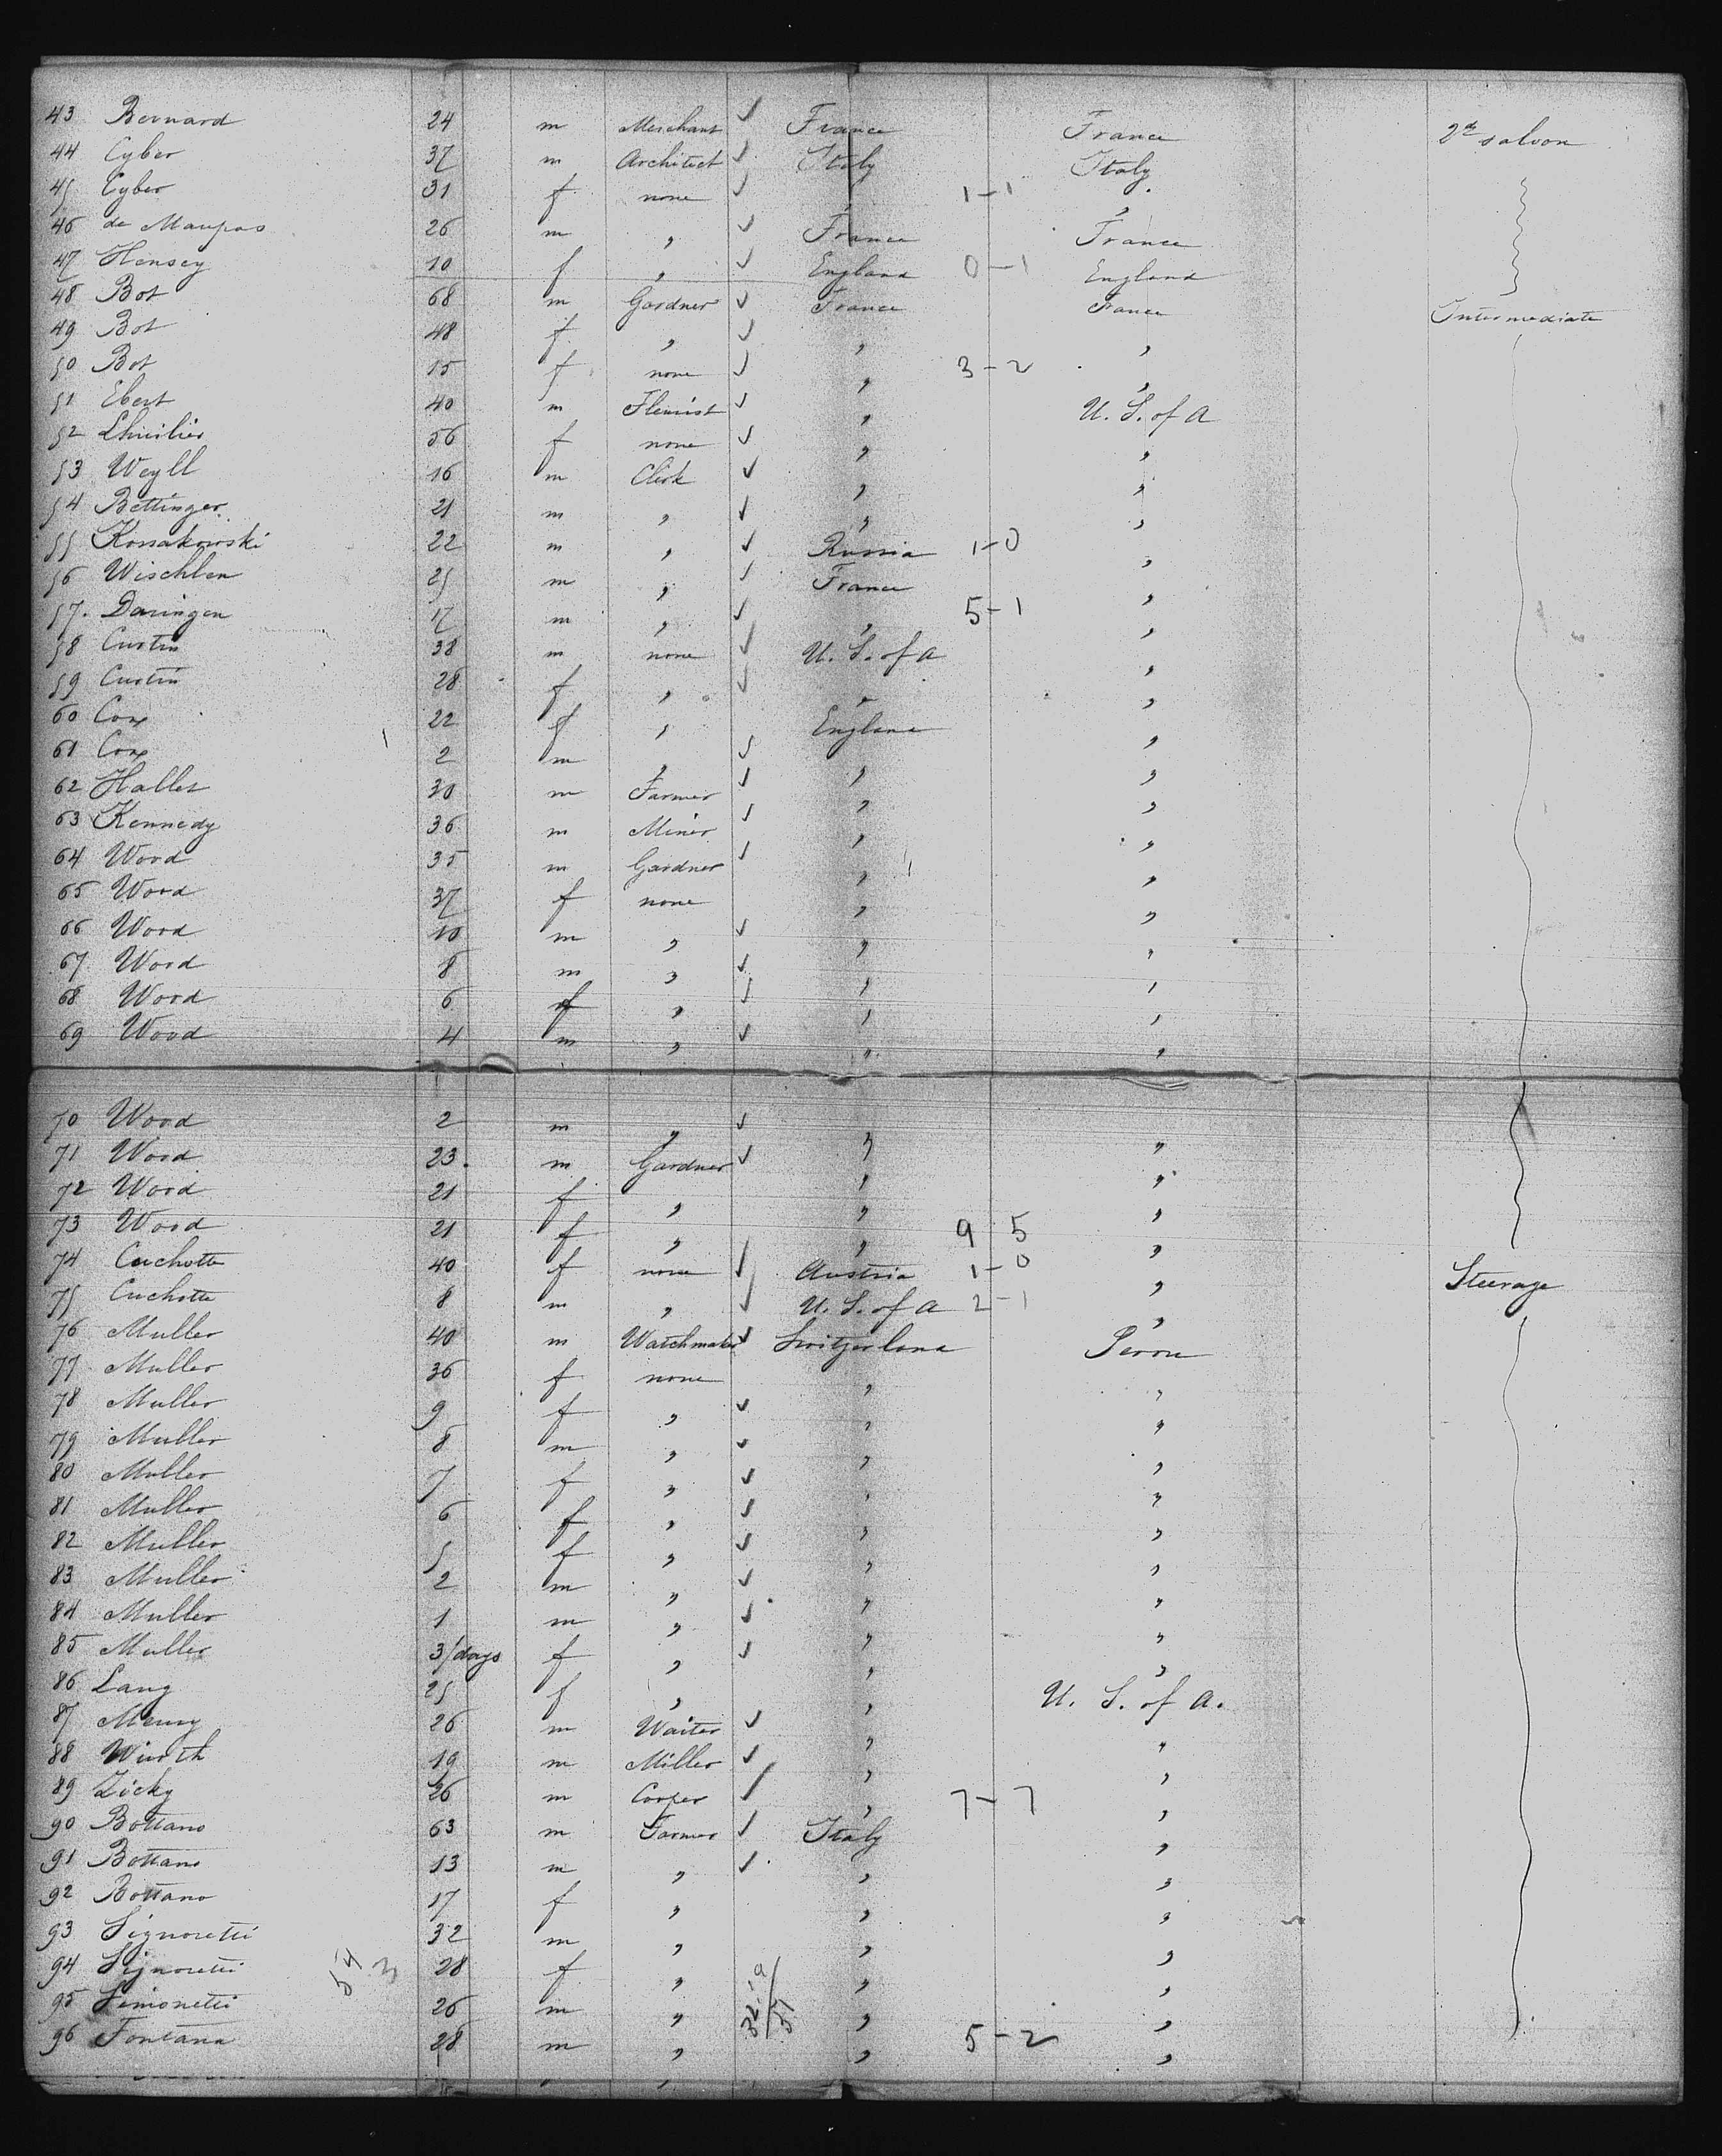 43 Bernard 24 m Merchant ✓ France France 2d saloon
44 Cyber 37 m Architect ✓ Italy Italy
45 Cyber 31 f none ✓ " 1-1 "
46 de Maupas 26 m " ✓ France France
47 Hensey 10 f " ✓ England 0-1 England
48 Bot 68 m Gardner ✓ France France Intermediate
49 Bot 48 f " ✓ " "
50 Bot 15 f none ✓ " 3-2 "
51 Ebert 40 m ✓ " U. S. of A
52 Lhuilier 56 f none ✓ " "
53 Weyll 16 m Clerk ✓ " "
54 Bettinger 21 m " ✓ " "
55 Kossakowski 22 m " ✓ Russia 1-0 "
56 Wischlen 25 m " ✓ France "
57. Daringen 17 m " ✓ " 5-1 "
58 Curtin 38 m none ✓ U. S. of A "
59 Curtin 28 f " ✓ " "
60 Cox 22 f " England "
61 Cox 2 m " ✓ " "
62 Hallet 30 m Farmer ✓ " "
63 Kennedy 36 m Miner ✓ " "
64 Wood 35 m Gardner ✓ " "
65 Wood 37 f none " "
66 Wood 10 m " ✓ " "
67 Wood 8 m " ✓ " "
68 Wood 6 f " ✓ " "
69 Wood 4 m " ✓ " "
70 Wood 2 m " ✓ " "
71 Wood 23. m Gardner ✓ " "
72 Wood 21 f " " "
73 Wood 21 f " " 9 5 "
74 Cuchotte 40 f none ✓ Austria 1-0 " Steerage
75 Cuchotte 8 m " ✓ U. S. of A 2-1 "
76 Muller 40 m Watchmaker ✓ Switzerland
77 Muller 36 f none " "
78 Muller 9 f " ✓ " "
79 Muller 8 m " ✓ " "
80 Muller 7 f " ✓ " "
81 Muller 6 f " ✓ " "
82 Muller 5 f " ✓ " "
83 Muller 2 m " ✓ " "
84 Muller 1 m " ✓ " "
85 Muller 3/days f " ✓ " "
86 Lang 25 f " " U. S. of A.
87 Meury 26 m Waiter ✓ " "
88 Wirth 19 m Miller ✓ " "
89 Zicky 26 m Cooper ✓ " 7-7 "
90 Bottano 63 m Farmer ✓ Italy "
91 Bottano 13 m " ✓ " "
92 Bottano 17 f " " "
93 Signoretti 32 m " " "
94 Signoretti 28 f " " "
95 Simonetti 26 m " " "
96 Fontana 28 m " " 5-2 "